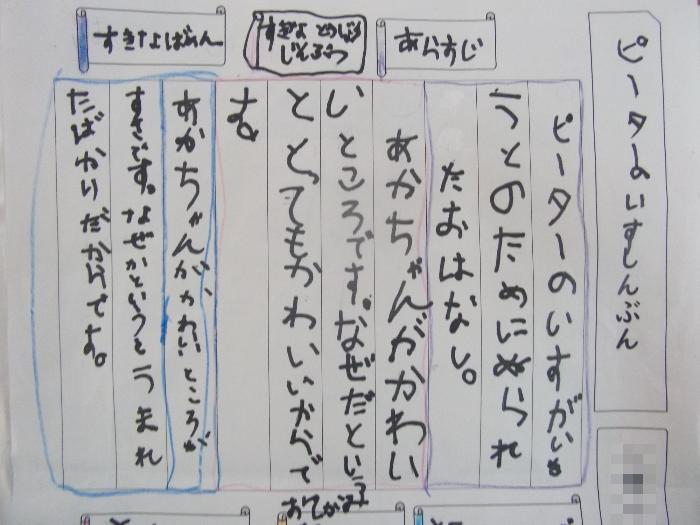 ピーターのいすしんぶん
あらすじ
ピーターのいすがいも
うとのためにぬられ
たおはなし。
すきなとうじょう
じんぶつ
あかちゃんがかわい
いところです。なぜだという
ととってもかわいいからで
す。
すきなばめん
あかちゃんがかわいいところが
すきです。なぜかというとうまれ
たばかりだからです。
おてがみ